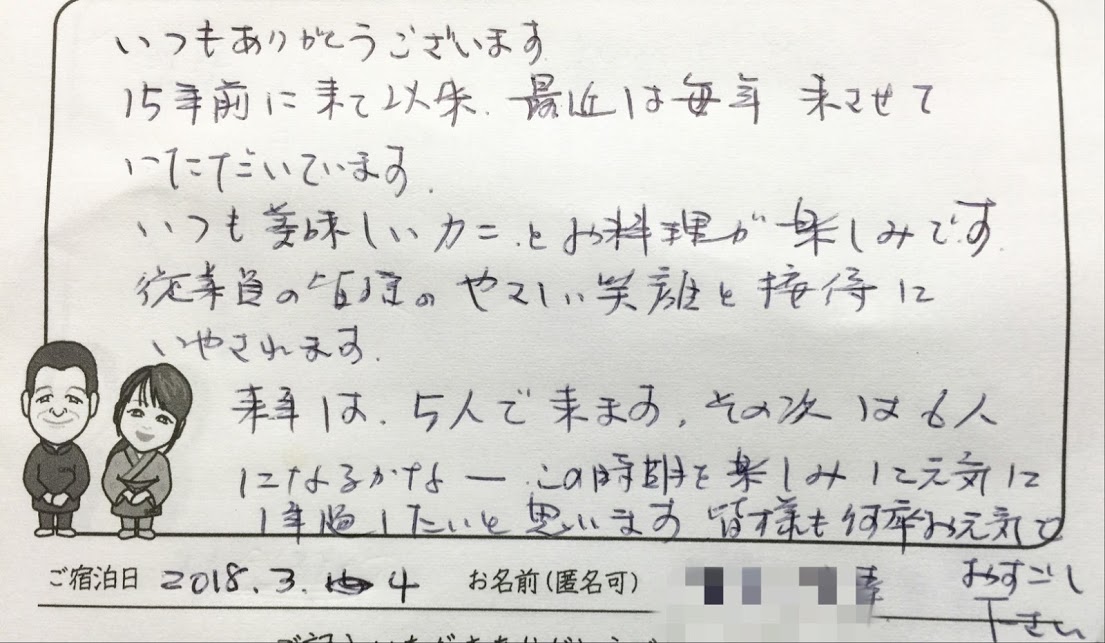 いつもありがとうございます
15年前に来て以来、最近は毎年 来させて
いただいています。
いつも美味しいカニとお料理が楽しみです。
従業員の皆様のやさしい笑顔と接待に
いやされます。
来年は、5人で来ます。その次は6人
になるかなー この時期を楽しみに元気に
1年過したいと思います 皆様も何卒お元気で
おすごし
下さい
ご宿泊日 2018.3.4 お名前(匿名可)